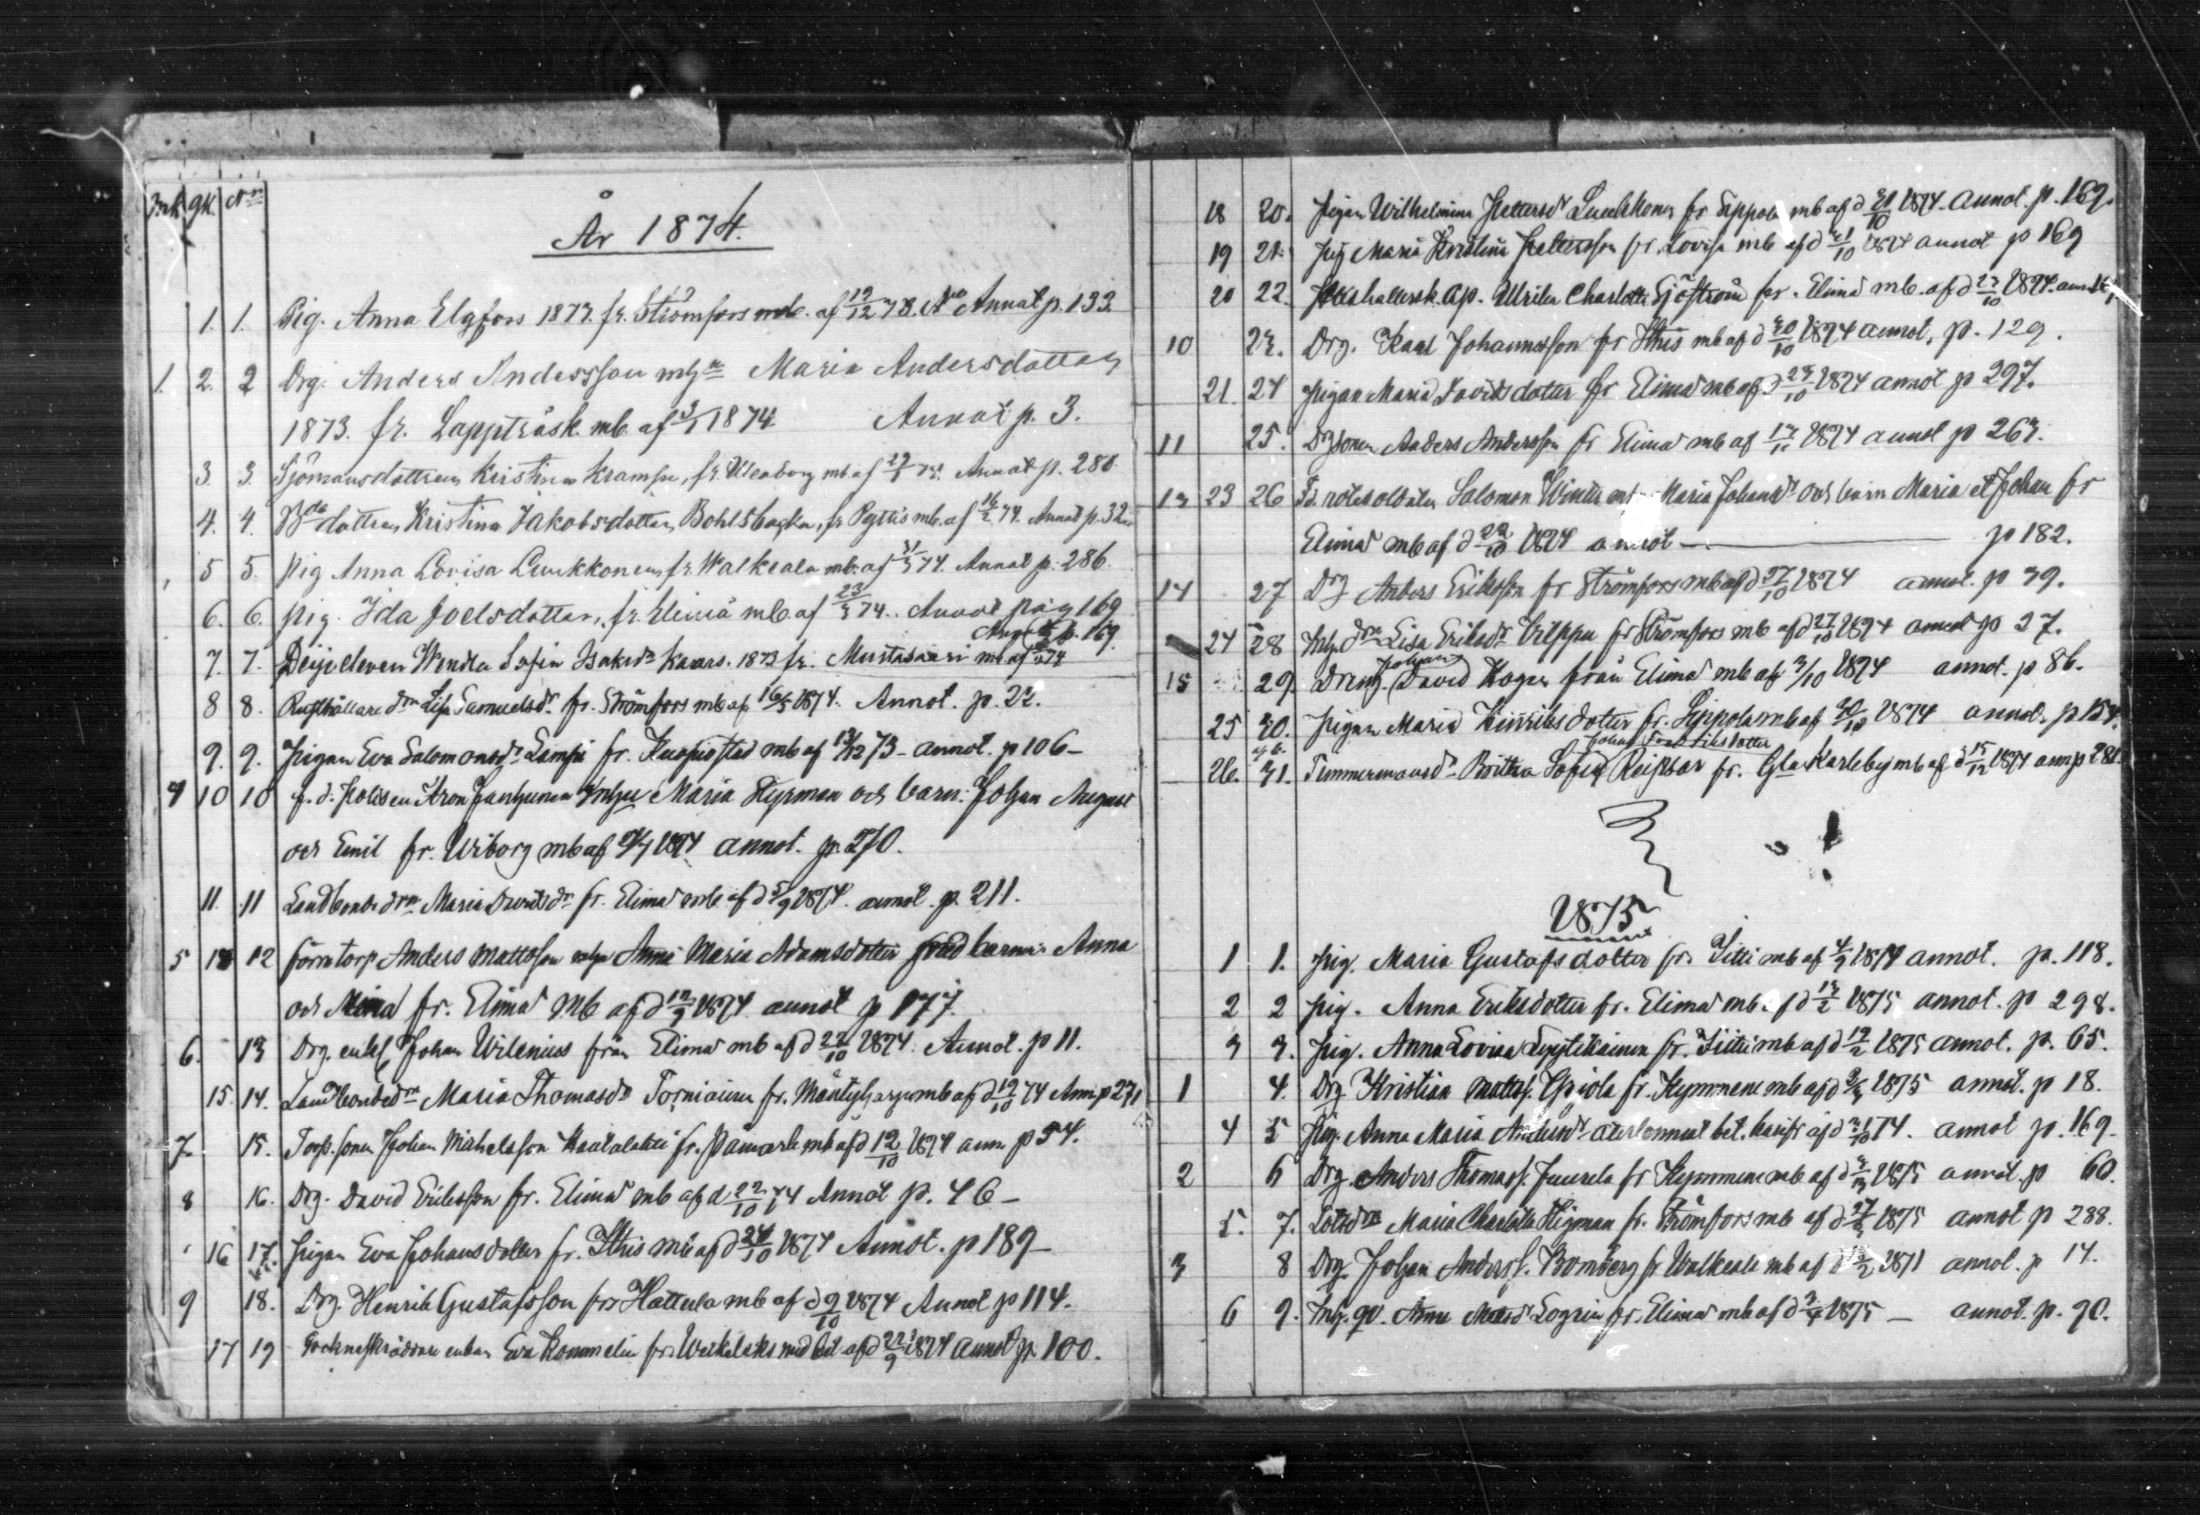 Mk. Qk. Nro
År 1874.
1. 1. Pig. Anna Elgfors 1873. fr. Strömfors mb. af 19/12 73. Annot p. 133.
1. 2. 2 Drg. Anders Andersson m hu Maria Andersdotter
1873. fr. Lappträsk mb. af 3/1 1874. Annot p. 3.
3. 3. Sjömansdottren Kristina Kramsu, fr. Uleaborg mb af 74. Annot p. 280.
4. 4. Bdedottren Kristina Jakobsdotter Bohlsbacka, fr Pyttis mb. af 16/2 74. Annot p. 32
5 5. Pig Anna Lovisa Luukkonen fr. Walkeala mb. af 74. Annot p. 286.
6. 6. Pig. Ida Joelsdotter, fr. Elimä mb af 23/3 74. Annot pag 169
7. 7. Deijeleven Wendla Sofia Isaksdr Kaars. 1873 fr. Mustasaari mb af 74 Annot p. 169.
8 8. dra Lisa Samuelsdr. fr. Strömfors mb af 16/5 1874. Annot. p. 22.
9. 9. Pigan Eva Salomonsdr Lampi fr. Kuopio stad mb af 13/12 73 – annot. p 106 –
4 10 10 f. d. Polisen Aron Janhunen m hu Maria Hyrman och barn: Johan August
och Emil fr. Wiborg mb af 1874 annot. p. 270.
11. 11 Landbonde drn Maria Davidsdr fr. Elimä mb af d 5/9 1874. annot. p. 211.
5 12 12 förre torp Anders Mattsson m hu Anna Maria Adamsdotter barnen Anna
och Mina fr. Elimä mb af d 12/9 1874 annot p 177.
6. 13 Drg. enkl. Johan Wilenius från Elimä mb af d 22/10 1874. Annot. p 11.
15. 14. Landbondedrn Maria Thomasdr Torniainen fr. Mäntyharju mb af d 12/10 74 Ann p 271
7. 15. Torp. sonen Johan Mickelsson fr. Pämark mb af d 12/10 1874 ann p 54.
8 16. Drg. David Eriksson fr. Elimä mb af d 22/10 74 Annot p. 46 –
16 17. Pigan Eva Johansdotter fr. Ithis mb af d 24/10 1874 Annot. p 189 –
9 18. Drg. Henrik Gustafsson frn Hattula mb af d 9/10 1874 Annot p 114.
17 19 Socknskräddare enkan Eva Kommelin frn Weckelaks med bet. af d 22/9 1874 annot p. 100.
18 20. Pigan Wilhelmina Pettersdr Luukkonen fr Sippola mb af d 31/10 1874. annot. p. 169.
19 21. Pig Maria Kristina Pettersson fr. Lovisa mb af d 31/10 1874 annot p 169
20 22. Ap. Ulrika Charlotta Sjöström fr. Elimä mb. af d 27/10 1874. ann.
10 23. Drg. Karl Johannesson fr Ithis mb af d 30/10 1874 annot, p. 129.
21. 24 Pigan Maria Davidsdotter fr Elimä mb af d 23/10 1874 annot p 297.
11 25. Drgsonen Anders Andersson fr Elimä mb af 1874 annot p 263.
13 23 26 Fd. rotesoldaten Salomon Winter Maria Johansdr och barn Maria et Johan fr
Elimä mb af d 22/10 1874 annot — p 182.
14 27 Drg Anders Eriksson fr Strömfors mb af d 27/10 1874 annot. p 39.
24 28 Lisa Eriksdr Vilppu fr Strömfors mb af d 27/10 1874 annot p 27.
15 29. Dreng. Johan David Kogen från Elimä mb af 3/10 1874 annot. p 86.
25 30. Pigan Maria Henriksdotter fr. Sippola mb af 30/10 1874 annot. p 154.
26. 31. Timmermansdr Britha Sofia Reipbar fr. Gla Karleby mb af d 15/12 1874 ann p 281
1875
1 1. Pig. Maria Gustafsdotter fr. Iitti mb af 1874 annot. p. 118.
2 2 Pig. Anna Eriksdotter fr. Elimä mb. af d 13/2 1875 annot. p 298.
3 3. Pig. Anna Lovisa Lyytikäinen fr. Iitti mb af d 19/2 1875 annot. p. 65.
1 4. Drg Kristian Mattss. fr. Kymmene mb af d 1875 annot. p 18.
4 5 Pig. Anna Maria Andersdr återkommit bet. af d 31/10 74. annot p. 169.
2 6 Drg Anders Thomass. Juurela fr Kymmene mb af d 1875 annot. p 60.
5. 7. Lotsdrn Maria Charlotta Hyman fr. Strömfors mb af d 1875 annot p 288.
3 8 Drg. Johan Anderss. Bomberg fr Walkeala mb af d 1871 annot. p 14.
6 9. Anna Matsdr Logren fr. Elimä mb af d 1875 — annot. p. 90.